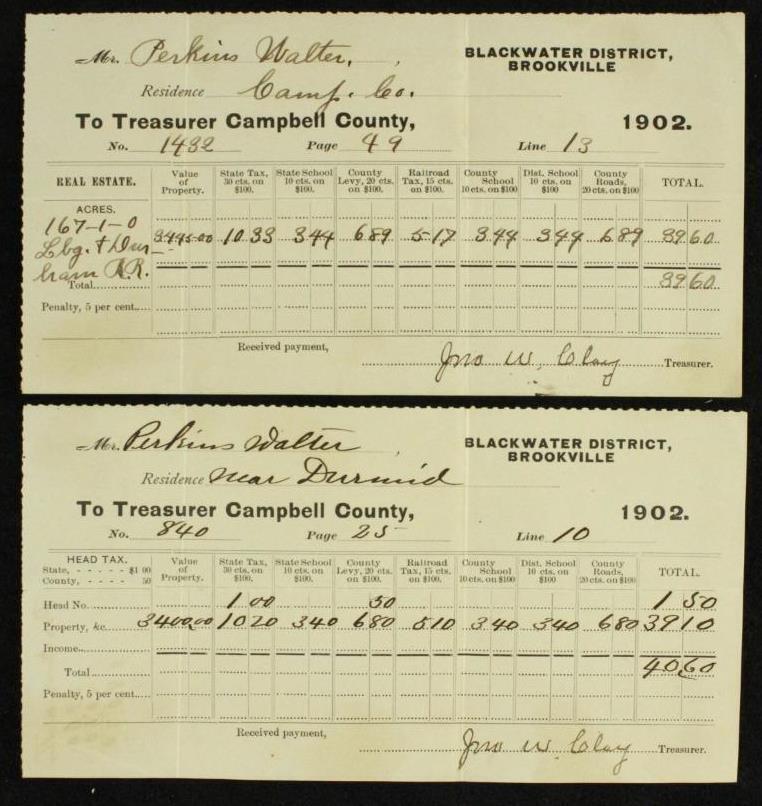 Mr. Perkins Walter,
BLACKWATER DISTRICT,
BROOKVILLE
Residence Camp. Co.
To Treasurer Campbell County, 1902.
No. 1432 Page 49 Line 13
REAL ESTATE. Value of Property. State Tax, 30 cts. on $100. State School 10 cts. on $100. County Levy, 20 cts. on $100. Railroad Tax, 15 cts. on $100. County School 10 cts. on $100 Dist. School 10 cts. on $100 County Roads, 20 cts. on $100 TOTAL.
ACRES.
167-1-0
Lbg. & Dur- 3445.00 10 33 3 44 6 89 5 17 3 44 3 44 6 89 39 60
ham R.R.
Total 39 60
Penalty, 5 per cent.
Received payment,
Jno W. Clay Treasurer.
Mr. Perkins Walter
BLACKWATER DISTRICT,
BROOKVILLE
Residence near Durmid
To Treasurer Campbell County, 1902.
No. 840 Page 25 Line 10
HEAD TAX. Value of Property. State Tax, 30 cts. on $100. State School 10 cts. on $100. County Levy, 20 cts. on $100. Railroad Tax, 15 cts. on $100. County School 10 cts. on $100 Dist. School 10 cts. on $100 County Roads, 20 cts. on $100 TOTAL.
State, - - - - - $1 00
County, - - - - 50
Head No. 1 00 50 1 50
Property, &c. 3400.00 10 20 3 40 6 80 5 10 3 40 3 40 6 80 39 10
Income
Total 40 60
Penalty, 5 per cent.
Received payment,
Jno W. Clay Treasurer.